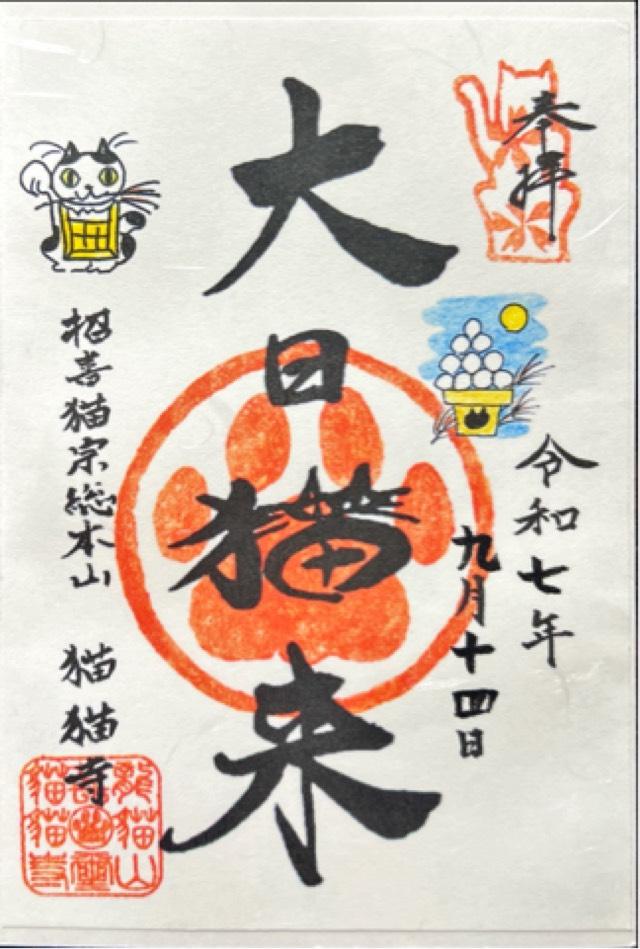 奉拝
令和七年
九月十四日
大日猫来
招喜猫宗総本山　猫猫寺
龍貓山
貓貓寺